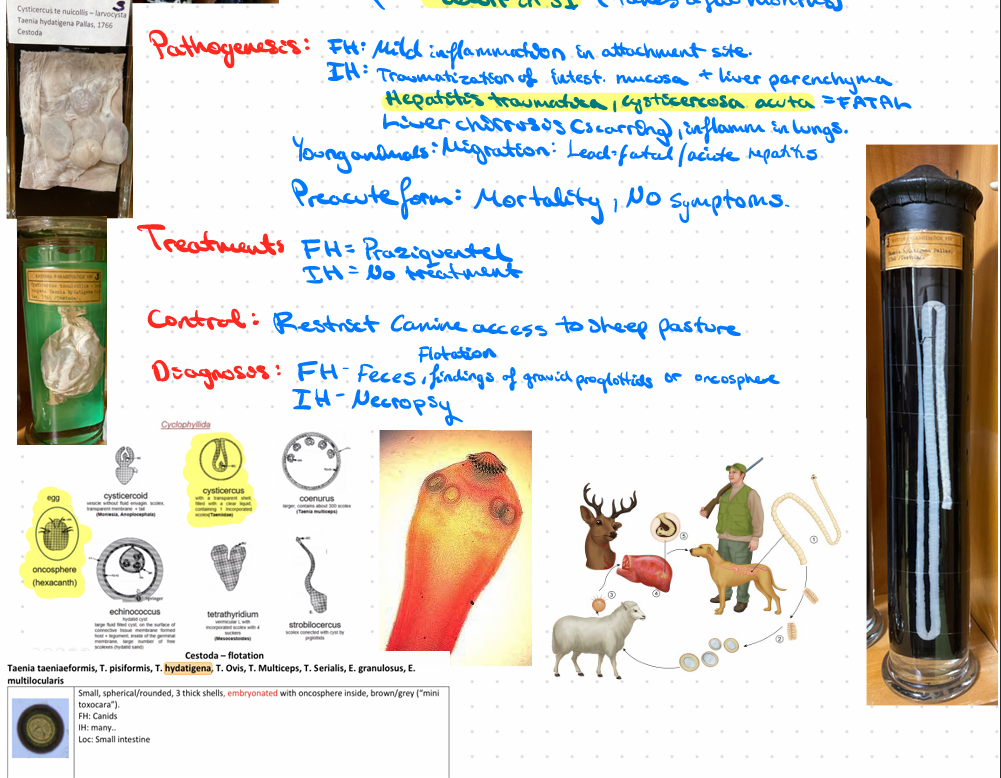 Cysticercus te nuicollis – larvocysta
Taenia hydatigena Pallas, 1766
Cestoda
Pathogenesis: FH: Mild inflammation in attachment site.
IH: Traumatization of intest. mucosa + liver parenchyma
Hepatitis traumatica, cysticercosa acuta = FATAL
Liver chirrosis (scarring), inflamm in lungs.
Young animals: Migration: Lead-fatal/acute hepatitis
Preacute form: Mortality, No symptoms.
Treatment: FH = Praziquentel
IH = No treatment
Control: Restrict Canine access to sheep pasture
Flotation
Diagnosis: FH - Feces, findings of gravid proglottids or oncosphere
IH - Necropsy
Cyclophyllida
egg
oncosphere
(hexacanth)
cysticercoid
vesicle without fluid envagin. scolex,
transparent membrane + tail
(Moniezia, Anoplocephala)
cysticercus
with a transparent shell,
filled with a clear liquid,
containing 1 incorporated
scolex(Taenidae)
coenurus
larger, contains about 300 scolex
(Taenia multiceps)
echinococcus
hydatid cyst
large fluid filled cyst, on the surface of
connective tissue membrane formed
host + tegument, inside of the germinal
membrane, large number of free
scolexes (hydatid sand)
Springer
tetrathyridium
vermicular L with
incorporated scolex with 4
suckers
(Mesocestoides)
strobilocercus
scolex conected with cyst by
proglotids
① ② ③ ④ ⑤
Cestoda – flotation
Taenia taeniaeformis, T. pisiformis, T. hydatigena, T. Ovis, T. Multiceps, T. Serialis, E. granulosus, E.
multilocularis
Small, spherical/rounded, 3 thick shells, embryonated with oncosphere inside, brown/grey ("mini
toxocara").
FH: Canids
IH: many..
Loc: Small intestine